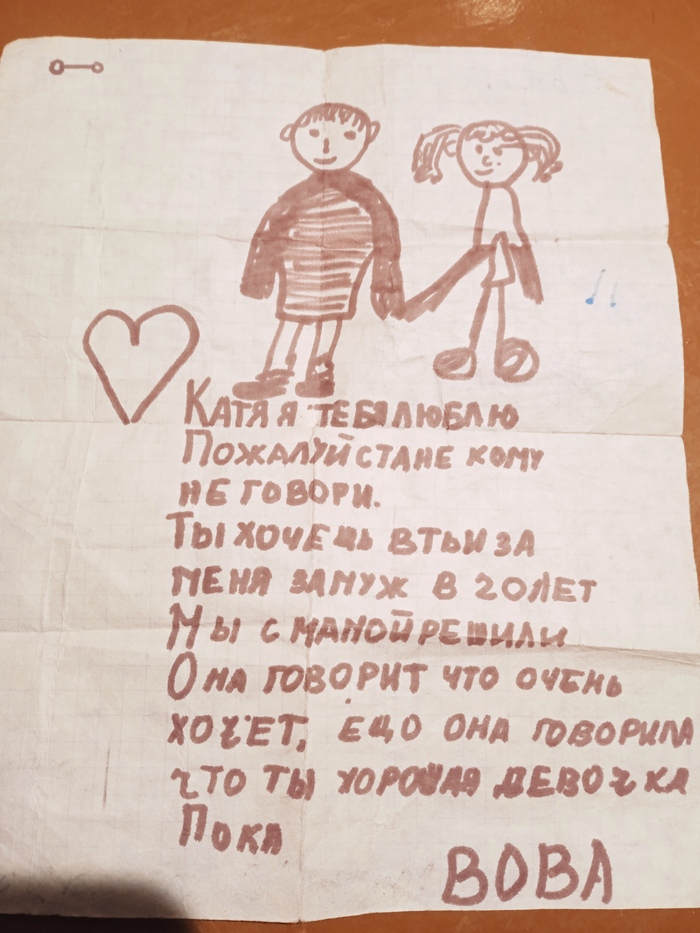 КАТЯ Я ТЕБЯ ЛЮБЛЮ
ПОЖАЛУЙСТА НЕ КОМУ
НЕ ГОВОРИ.
ТЫ ХОЧЕШЬ ВТЫЙ ЗА
МЕНЯ ЗАМУЖ В 20 ЛЕТ
МЫ С МАМОЙ РЕШИЛИ
ОНА ГОВОРИТ ЧТО ОЧЕНЬ
ХОЧЕТ, ЕЩО ОНА ГОВОРИЛА
ЧТО ТЫ ХОРОШАЯ ДЕВОЧКА
ПОКА
ВОВА